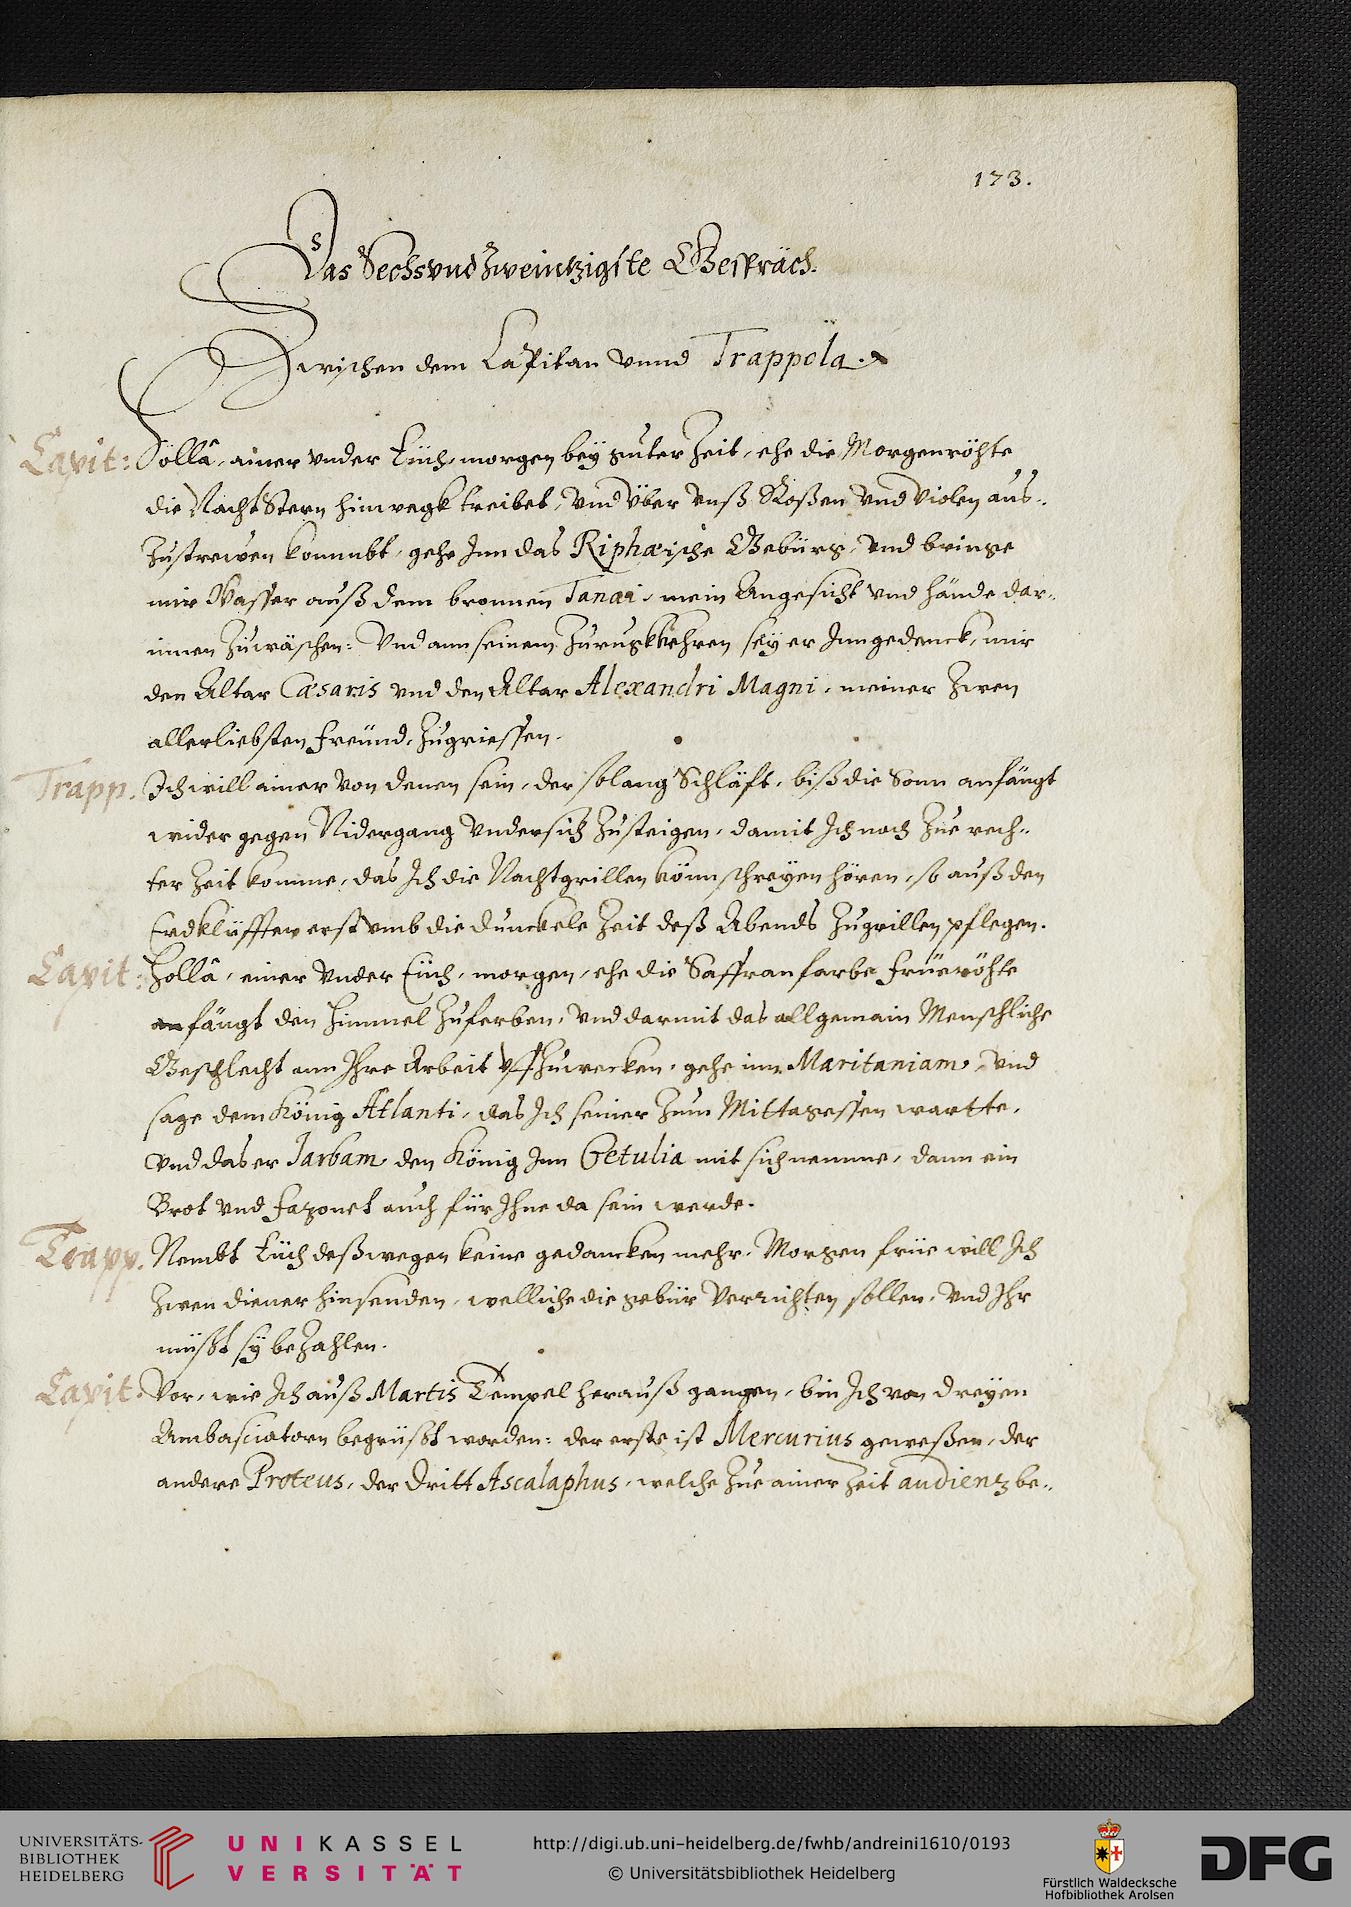 173.
Das Sechsvndzweintzigste Gespräch.
Zwischen dem Capitan vnnd Trappola.
Capit: Hollâ, ainer vnder Eüch, morgen bey guter Zeit, ehe die Morgenröhte
die Nacht Stern hinwegk treibet, vnd über vnß Roßen vnd Violen aus-
Zustrewen kommbt, gehe Inn das Riphæische Gebürg, vnd bringe
mir Wasser auß dem bronnen Tanai, mein Angesicht vnd hände dar-
innen Zuwäschen: Vnd ann seinem Zurugkkehren sey er Inngedenck, mir
den Altar Cæsaris vnd den Altar Alexandri Magni, meiner Zwen
allerliebsten freünd, Zugriessen.
Trapp. Ich will ainer von denen sein, der solang Schläft, biß die Sonn anfängt
wider gegen Nidergang vndersich Zusteigen, damit Ich noch Zue rech-
ter Zeit komme, das Ich die Nachtgrillen könn schreyen hören, so auß den
Erdklüfften erst vmb die dunckele Zeit deß Abends Zugrillen pflegen.
Capit: Hollâ, einer vnder Eüch, morgen, ehe die Saffranfarbe früeröhte
anfängt den Himmel Zuferben, vnd darmit das allgemain Menschliche
Geschlecht ann Ihre Arbeit vffZuwecken, gehe inn Maritaniam, vnd
sage dem König Atlanti, das Ich seiner Zum Mittagessen wartte,
vnd das er Jarbam den König Inn Getulia mit sich nemme, dann ein
Brot vnd fazonet auch für Ihne da sein werde.
Trapp. Nembt Eüch deßwegen keine gedancken mehr, Morgen früe will Ich
Zwen diener hinsenden, welliche die gebür verrichten sollen, vnd Ihr
müßt sy beZahlen.
Capit: Vor, wie Ich auß Martis Tempel herauß gangen, bin Ich von dreyen
Ambasciatorn begrüßt worden: der erste ist Mercurius geweßen, der
andere Proteus, der dritt Ascalaphus, welche Zue ainer Zeit audientz be-
UNIVERSITÄTS-
BIBLIOTHEK
HEIDELBERG
UNIKASSEL
VERSITÄT
http://digi.ub.uni-heidelberg.de/fwhb/andreini1610/0193
© Universitätsbibliothek Heidelberg
Fürstlich Waldecksche
Hofbibliothek Arolsen
DFG